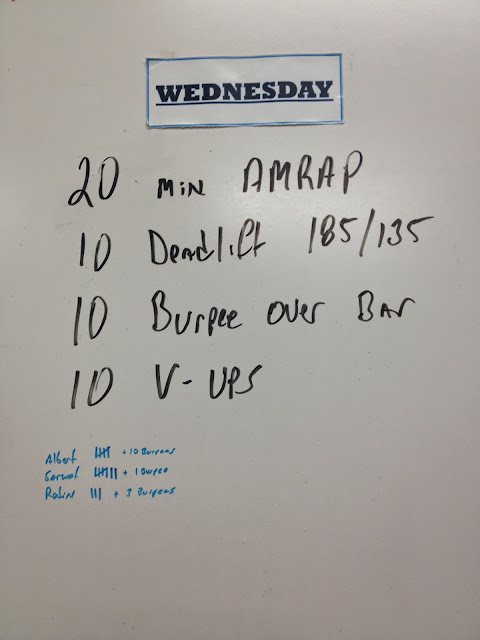 WEDNESDAY
20 MIN AMRAP
10 Deadlift 185/135
10 Burpee over Bar
10 V-UPS
Albert + 10 Burpees
+ 1 Burpee
Robin ||| + 3 Burpees